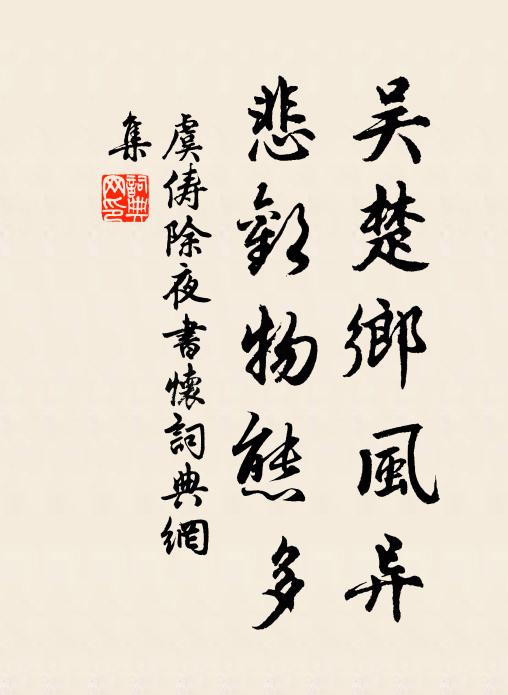 吴楚鄉風异
悲歡物態多
虞儔除夜書懷詞典網
集
詞典
网印